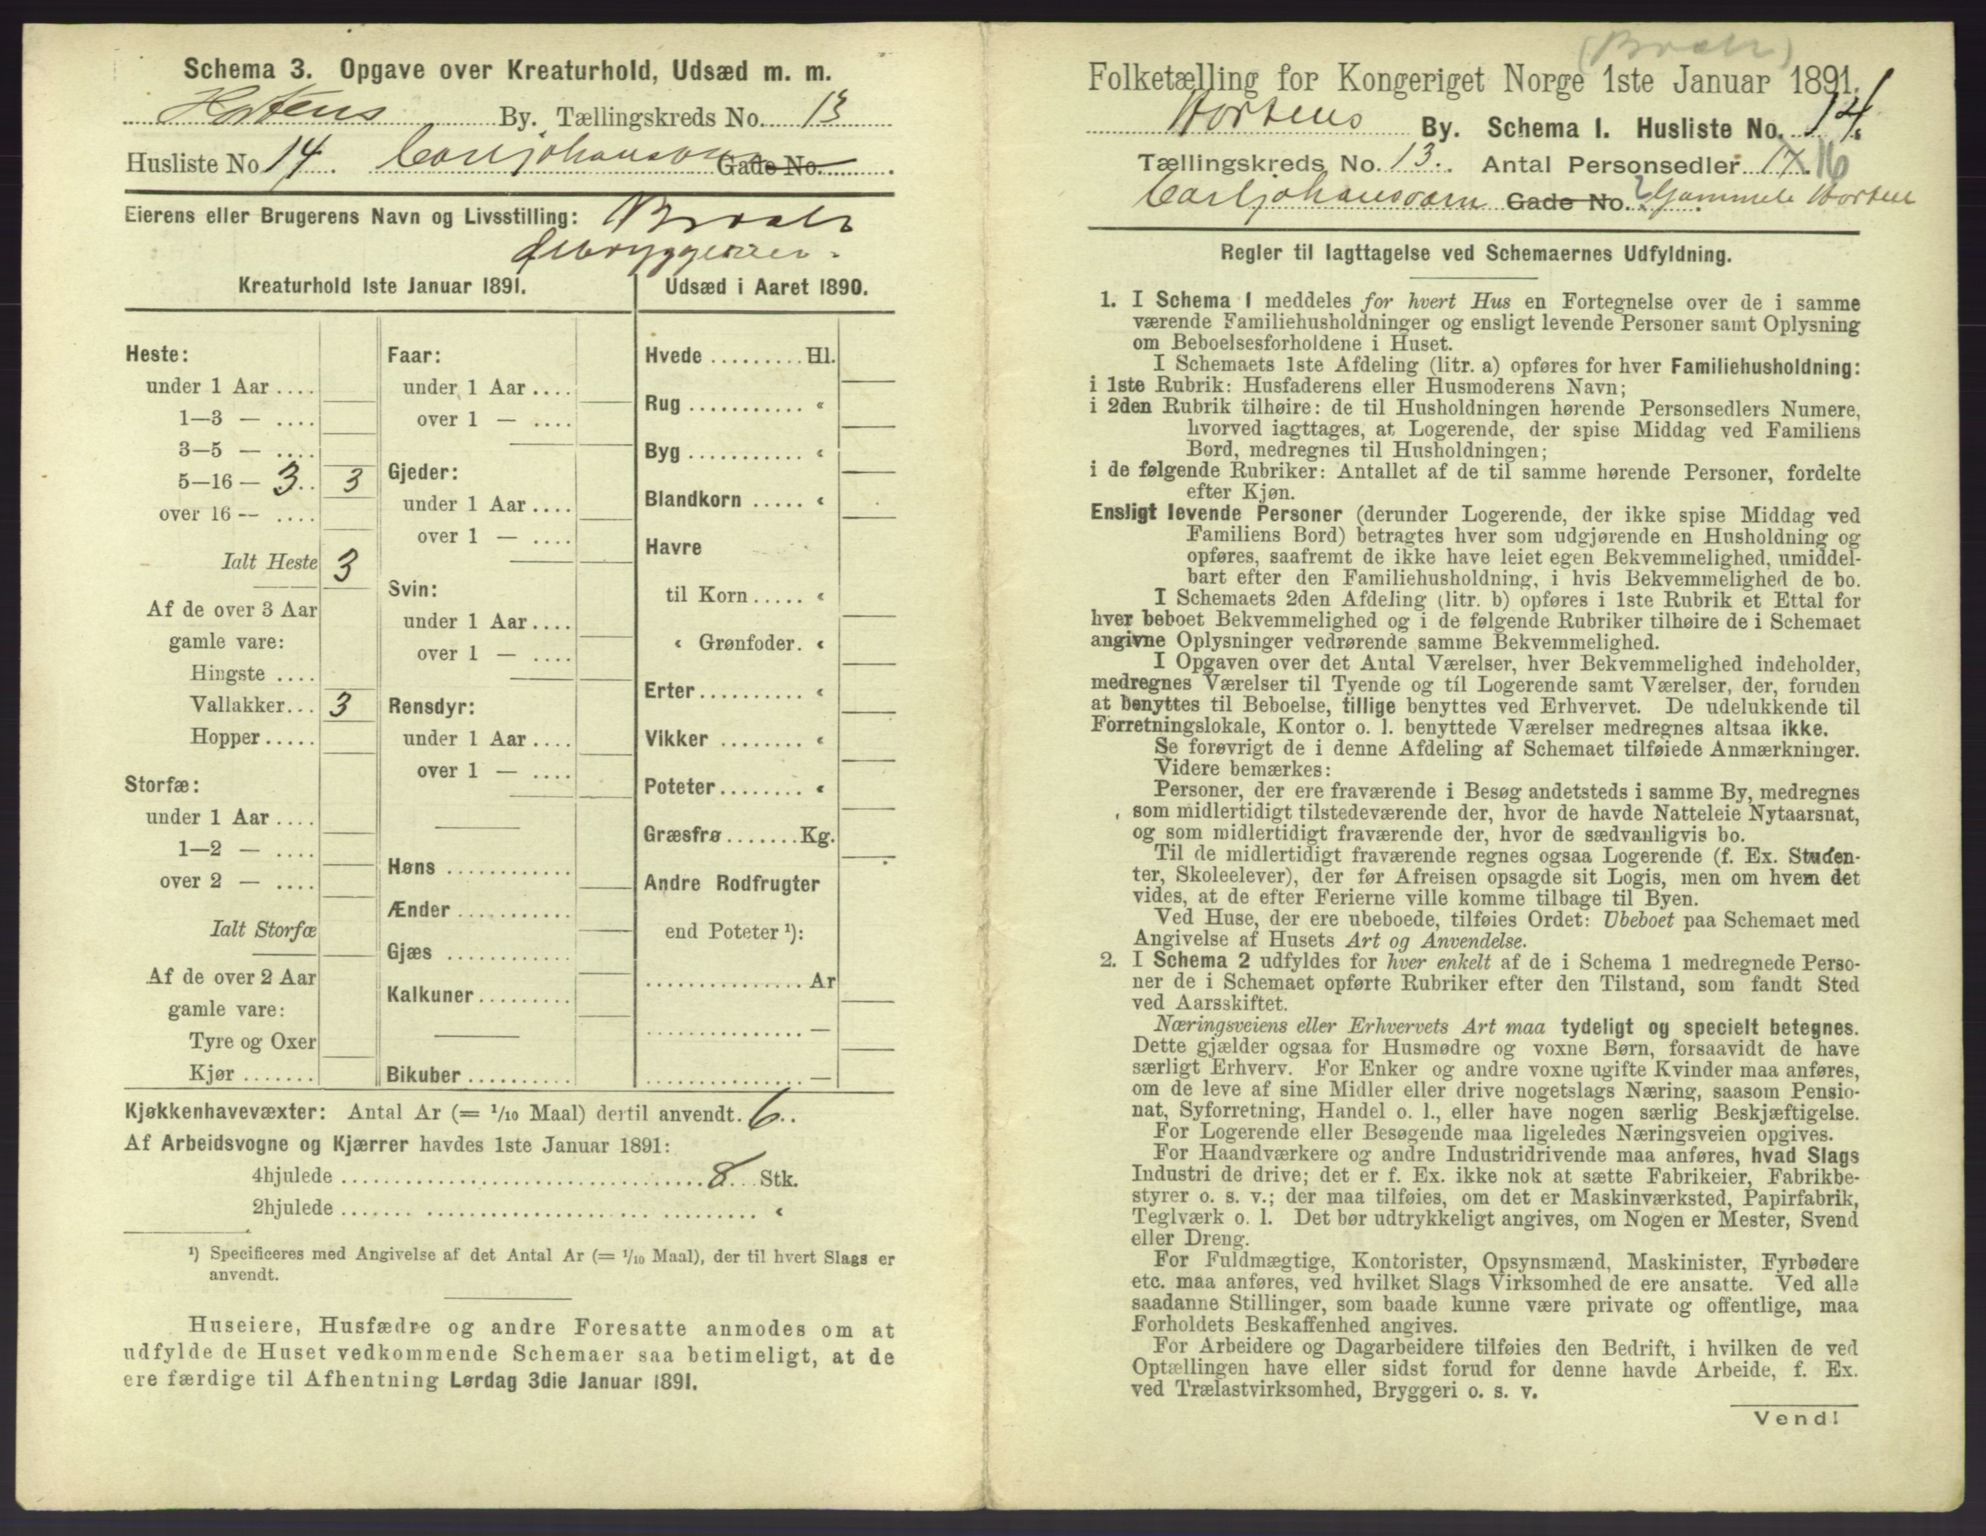 Schema 3. Opgave over Kreaturhold, Udsæd m. m.
Hortens By. Tællingskreds No. 13
Husliste No. 14. Carljohansværn Gade No.
Eierens eller Brugerens Navn og Livsstilling:
Ølbryggerier.
Kreaturhold 1ste Januar 1891.
Heste:
under 1 Aar ....
1—3 — ....
3—5 — ....
5—16 — 3.. 3
over 16 -- ....
Ialt Heste 3
Af de over 3 Aar
gamle vare:
Hingste ....
Vallakker... 3
Hopper.....
Storfæ:
under 1 Aar ....
1—2 — ....
over 2 — ....
Ialt Storfæ
Af de over 2 Aar
gamle vare:
Tyre og Oxer
Kjør .......
Faar:
under 1 Aar ....
over 1 — ....
Gjeder:
under 1 Aar ....
over 1 — ....
Svin:
under 1 Aar....
over 1 — ....
Rensdyr:
under 1 Aar....
over 1 — ....
Høns ............
Ænder ...........
Gjæs ............
Kalkuner.........
Bikuber ..........
Udsæd i Aaret 1890.
Hvede .........Hl.
Rug ........... «
Byg ........... «
Blandkorn ..... «
Havre
til Korn ..... «
« Grønfoder. «
Erter.......... «
Vikker ........ «
Poteter........ «
Græsfrø .......Kg.
Andre Rodfrugter
end Poteter ¹):
............... Ar
............... —
............... —
Kjøkkenhavevæxter: Antal Ar (= 1/10 Maal) dertil anvendt. 6..
Af Arbeidsvogne og Kjærrer havdes 1ste Januar 1891:
4hjulede .................................. 8... Stk.
2hjulede .................................. «
¹) Specificeres med Angivelse af det Antal Ar (= 1/10 Maal), der til hvert Slags er
anvendt.
Huseiere, Husfædre og andre Foresatte anmodes om at
udfylde de Huset vedkommende Schemaer saa betimeligt, at de
ere færdige til Afhentning Lørdag 3die Januar 1891.
Folketælling for Kongeriget Norge 1ste Januar 1891.
Hortens By. Schema 1. Husliste No. 14.
Tællingskreds No. 13. Antal Personsedler 17. 16
Carljohansværn Gade No. ? Gammele Horten
Regler til Iagttagelse ved Schemaernes Udfyldning.
1. I Schema 1 meddeles for hvert Hus en Fortegnelse over de i samme
værende Familiehusholdninger og ensligt levende Personer samt Oplysning
om Beboelsesforholdene i Huset.
I Schemaets 1ste Afdeling (litr. a) opføres for hver Familiehusholdning:
i 1ste Rubrik: Husfaderens eller Husmoderens Navn;
i 2den Rubrik tilhøire: de til Husholdningen hørende Personsedlers Numere,
hvorved iagttages, at Logerende, der spise Middag ved Familiens
Bord, medregnes til Husholdningen;
i de følgende Rubriker: Antallet af de til samme hørende Personer, fordelte
efter Kjøn.
Ensligt levende Personer (derunder Logerende, der ikke spise Middag ved
Familiens Bord) betragtes hver som udgjørende en Husholdning og
opføres, saafremt de ikke have leiet egen Bekvemmelighed, umiddel-
bart efter den Familiehusholdning, i hvis Bekvemmelighed de bo.
I Schemaets 2den Afdeling (litr. b) opføres i 1ste Rubrik et Ettal for
hver beboet Bekvemmelighed og i de følgende Rubriker tilhøire de i Schemaet
angivne Oplysninger vedrørende samme Bekvemmelighed.
I Opgaven over det Antal Værelser, hver Bekvemmelighed indeholder,
medregnes Værelser til Tyende og til Logerende samt Værelser, der, foruden
at benyttes til Beboelse, tillige benyttes ved Erhvervet. De udelukkende til
Forretningslokale, Kontor o. l. benyttede Værelser medregnes altsaa ikke.
Se forøvrigt de i denne Afdeling af Schemaet tilføiede Anmærkninger.
Videre bemærkes:
Personer, der ere fraværende i Besøg andetsteds i samme By, medregnes
som midlertidigt tilstedeværende der, hvor de havde Natteleie Nytaarsnat,
og som midlertidigt fraværende der, hvor de sædvanligvis bo.
Til de midlertidigt fraværende regnes ogsaa Logerende (f. Ex. Studen-
ter, Skoleelever), der før Afreisen opsagde sit Logis, men om hvem det
vides, at de efter Ferierne ville komme tilbage til Byen.
Ved Huse, der ere ubeboede, tilføies Ordet: Ubeboet paa Schemaet med
Angivelse af Husets Art og Anvendelse.
2. I Schema 2 udfyldes for hver enkelt af de i Schema 1 medregnede Perso-
ner de i Schemaet opførte Rubriker efter den Tilstand, som fandt Sted
ved Aarsskiftet.
Næringsveiens eller Erhvervets Art maa tydeligt og specielt betegnes.
Dette gjælder ogsaa for Husmødre og voxne Børn, forsaavidt de have
særligt Erhverv. For Enker og andre voxne ugifte Kvinder maa anføres,
om de leve af sine Midler eller drive nogetslags Næring, saasom Pensio-
nat, Syforretning, Handel o. l., eller have nogen særlig Beskjæftigelse.
For Logerende eller Besøgende maa ligeledes Næringsveien opgives.
For Haandværkere og andre Industridrivende maa anføres, hvad Slags
Industri de drive; det er f. Ex. ikke nok at sætte Fabrikeier, Fabrikbe-
styrer o. s. v.; der maa tilføies, om det er Maskinværksted, Papirfabrik,
Teglværk o. l. Det bør udtrykkeligt angives, om Nogen er Mester, Svend
eller Dreng.
For Fuldmægtige, Kontorister, Opsynsmænd, Maskinister, Fyrbødere
etc. maa anføres, ved hvilket Slags Virksomhed de ere ansatte. Ved alle
saadanne Stillinger, som baade kunne være private og offentlige, maa
Forholdets Beskaffenhed angives.
For Arbeidere og Dagarbeidere tilføies den Bedrift, i hvilken de ved
Optællingen have eller sidst forud for denne havde Arbeide, f. Ex.
ved Trælastvirksomhed, Bryggeri o. s. v.
Vend!